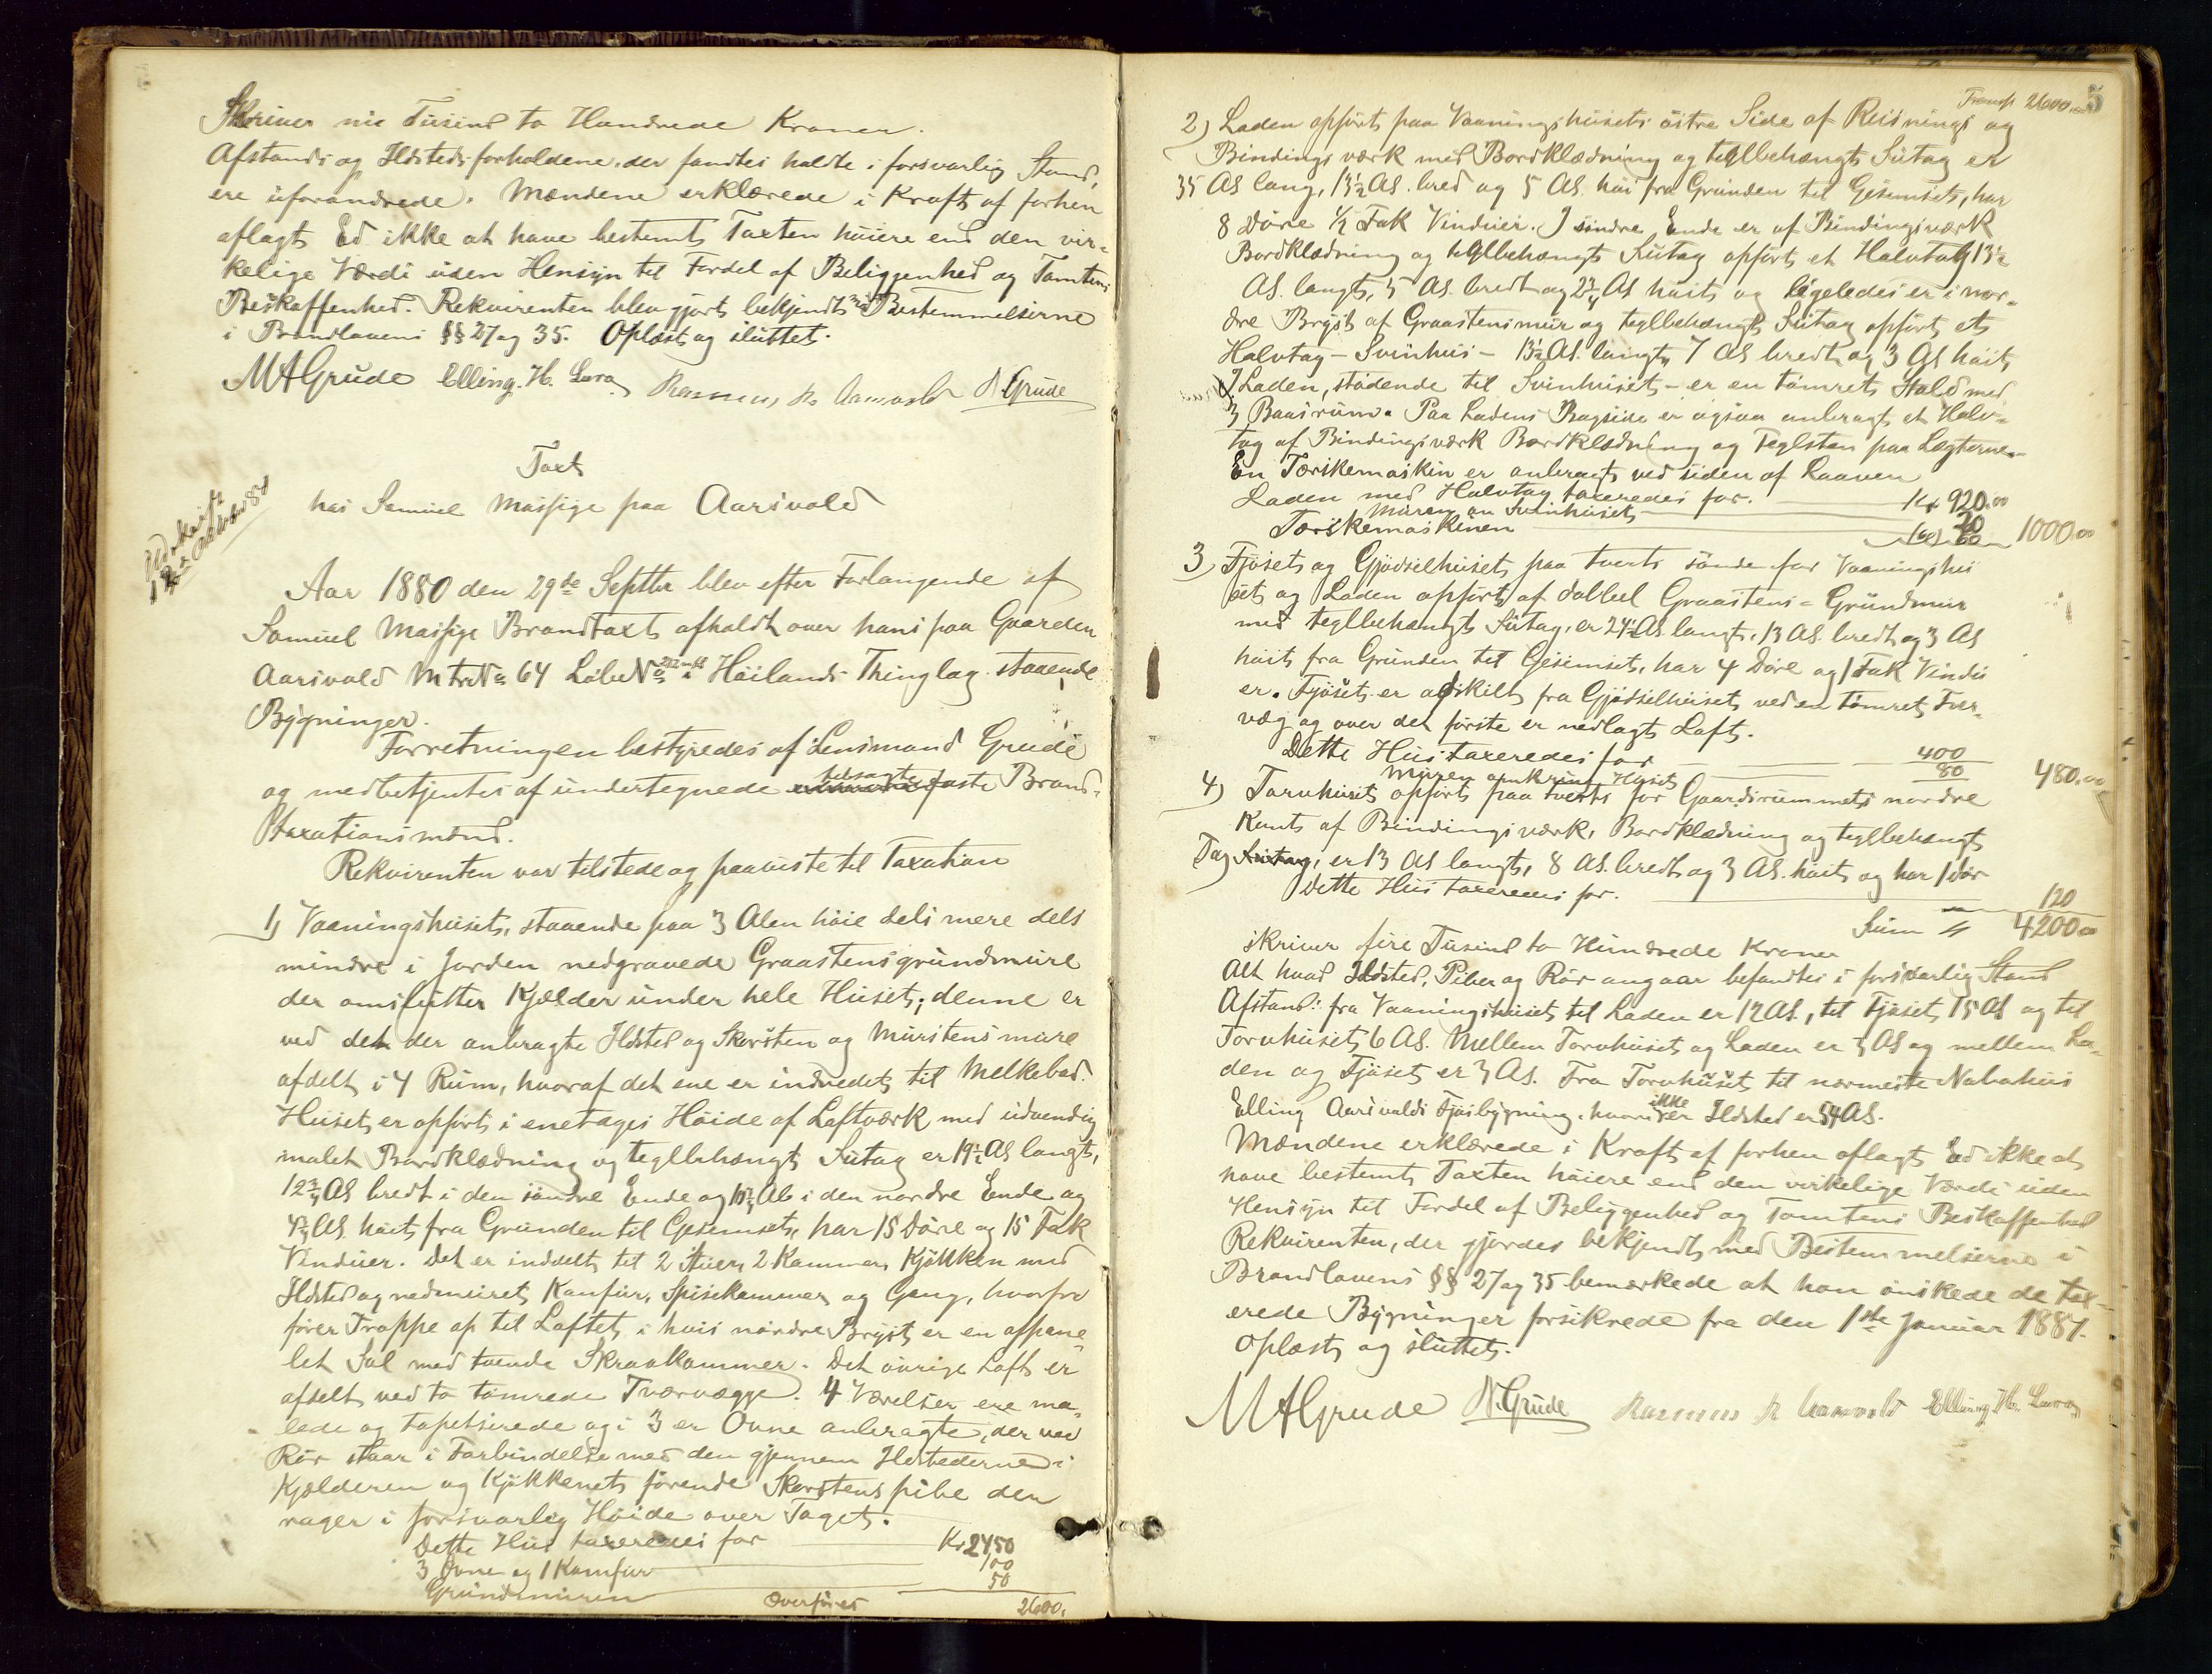 Skriver nie Tusind to Hundrede Kroner.
Afstands og Ildstedsforholdene, der fandtes holdte i forsvarlig Stand,
ere uforandrede. Mændene erklærede i Kraft af forhen
aflagt Ed ikke at have bestemt Taxten høiere end den vir-
kelige Værdi uden Hensyn til Fordel af Beliggenhed og Tomtens
Beskaffenhed. Rekvirenten blev gjort bekjendt med Bestemmelserne
i Brandlovens §§ 27 og 35. Oplæst og sluttet.
M A Grude Elling. H. Lura Rasmus R Aarsvold N Grude
Taxt
hos Samuel Massige paa Aarsvold
Udskrift
12te Oktober 80
Aar 1880 den 29de Septbr blev efter Forlangende af
Samuel Massige Brandtaxt afholdt over hans paa Gaarden
Aarsvold Mtr No 64 Løbe No i Høilands Thinglag staaende
Bygninger.
Forretningen bestyredes af Lensmand Grude
og medbetjentes af undertegnede faste Brand-
taxationsmænd.
Rekvirenten var tilstede og paaviste til Taxation
1) Vaaningshuset, staaende paa 3 Alen høie dels mere dels
mindre i Jorden nedgravede Graastensgrundmure
der omslutter Kjælder under hele Huset; denne er
ved det der anbragte Ildsted og Skorsten og Murstens mure
afdelt i 4 Rum, hvoraf det ene er indredet til Melkebod.
Huset er opført i en etages Høide af Loftværk med udvendig
malet Bordklædning og teglbehængt Sutag er 19½ Al langt,
12¾ Al bredt i den søndre Ende og Al i den nordre Ende og
Al. høit fra Grunden til Gesemset, har 15 Døre og 15 Fak
Vinduer. Det er inddelt til 2 Stuer, 2 Kammer, Kjøkken med
Ildsted og nedmuret Komfur, Spisekammer og Gang, hvorfra
fører Trappe op til Loftet, i hvis nordre Bryst er en oppane-
let Sal med tvende Skraakammer. Det øvrige Loft er
afdelt ved to tømrede Tværvægge. 4 Værelser ere ma-
lede og tapetserede og i 3 er Ovne anbragte, der ved
Rør staar i Forbindelse med den gjennem Ildstederne i
Kjælderen og Kjøkkenet førende Skorstens pibe den
rager i forsvarlig Høide over Taget.
Dette Hus taxeredes for Kr 2450
3 Ovne og 1 Komfur 100
Grundmuren 50
Overføres 2600.
5
Transp. 2600.00
2) Laden opført paa Vaaningshusets østre Side af Reisnings og
Bindingsværk med Bordklædning og teglbehængt Sutag er
35 Al lang, 13½ Al. bred og 5 Al. høi fra Grunden til Gesemset, har
8 Døre ½ Fak Vinduer. I søndre Ende er af Bindingsværk
Bordklædning og teglbehængt Sutag opført et Halvtag 13½
Al. langt, 5 Al. bredt og 2¾ Al høit og ligeledes er i nor-
dre Bryst af Graastensmur og teglbehængt Sutag opført et
Halvtag - Svinhus - 13½ Al. langt, 7 Al bredt og 3 Al høit
I Laden, stødende til Svinhuset - er en tømret Stald med
3 Baasrum. Paa Ladens Bagside er ogsaa anbragt et Halv-
tag af Bindingsværk Bordklædning og Teglsten paa Lægterne.
En Tærskemaskin er anbragt ved siden af Laaven
Laden med Halvtag taxeredes for. Kr 920.00
Muren om Svinhuset 20
Tærskemaskinen 60 1000.00
3) Fjøset og Gjødselhuset paa tvert sønden for Vaaningshu
set og Laden opført af dobbel Graastens - Grundmur
med teglbehængt Sutag, er 24½ Al. langt, 13 Al. bredt og 3 Al
høit fra Grunden til Gesemset, har 4 Døre og 1 Fak Vindu
er. Fjøset er adskilt fra Gjødselhuset ved en tømret Tver-
væg og over det første er nedlagt Loft.
Dette Hus taxeredes for 400
Muren omkring Huset 80 480.00
4) Torvhuset opført paa tverts for Gaardsrummets nordre
Kant af Bindingsværk, Bordklædning og teglbehængt
Tag Sutag, er 13 Al langt, 8 Al. bredt og 3 Al. høit og har 1 Dør
Dette Hus taxeredes for. 120
Sum 4200.00
skriver fire Tusind to Hundrede Kroner
Alt hvad Ildsted, Piber og Rør angaar befandtes i forsvarlig Stand
Afstand: fra Vaaningshuset til Laden er 12 Al., til Fjøset 15 Al og til
Torvhuset 6 Al. Mellem Torvhuset og Laden er 5 Al og mellem La-
den og Fjøset er 3 Al. Fra Torvhuset til nærmeste Nabohus
Elling Aarsvolds Fjøsbygning, hvori ikke er Ildsted er 54 Al.
Mændene erklærede i Kraft af forhen aflagt Ed ikke at
have bestemt Taxten høiere end den virkelige Værdi uden
Hensyn til Fordel af Beliggenhed og Tomtens Beskaffenhed
Rekvirenten, der gjordes bekjendt med Bestemmelserne i
Brandlovens §§ 27 og 35 bemærkede at han ønskede de tax-
erede Bygninger forsikrede fra den 1ste Januar 1881.
Oplæst og sluttet.
M A Grude N. Grude Rasmus R Aarsvold Elling H. Lura